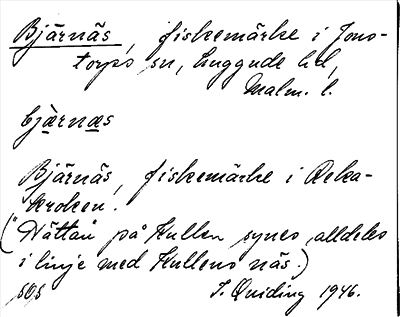 Bjärnäs, fiskemärke i Jons-
torps sn, Luggude hd,
Malm. l.
bjæ̀rnæs
Bjärnäs, fiskemärke i Reka-
kroken.
("Hättan" på Kullen synes alldeles
i linje med Kullens näs.)
sOs I. Quiding 1946.